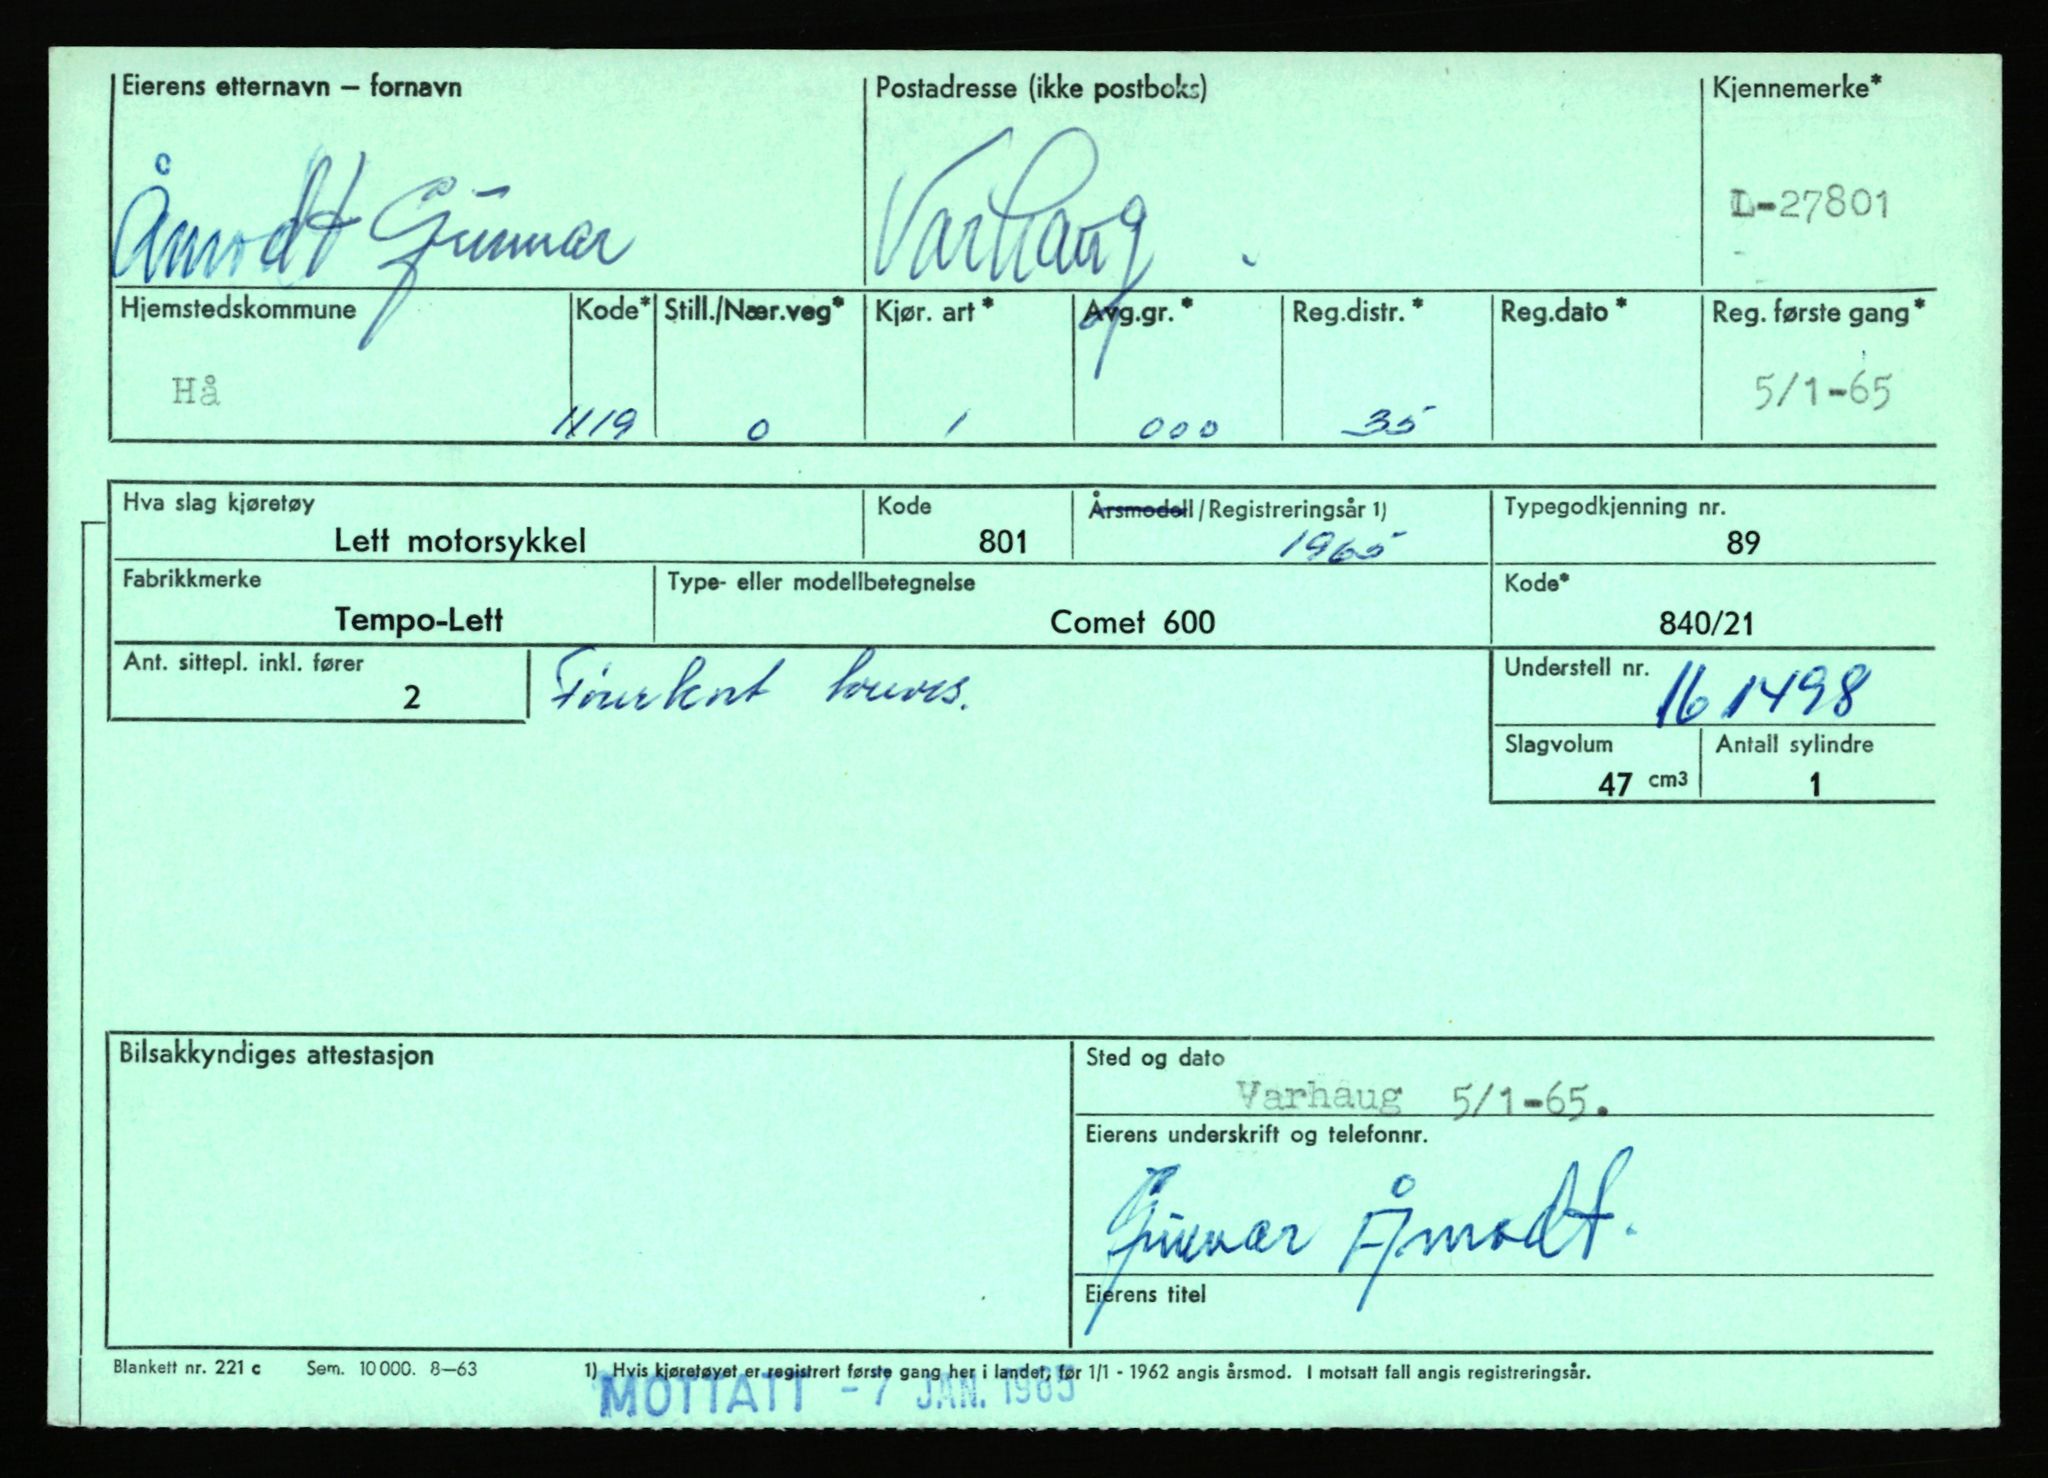 Eierens etternavn – fornavn Postadresse (ikke postboks) Kjennemerke*
Åmodt Gunnar Varhaug . L-27801
Hjemstedskommune Kode* Still./Nær.veg* Kjør. art* Avg.gr.* Reg.distr.* Reg.dato* Reg. første gang*
Hå 1119 0 1 000 35 5/1-65
Hva slag kjøretøy Kode Årsmodell/Registreringsår 1) Typegodkjenning nr.
Lett motorsykkel 801 1965 89
Fabrikkmerke Type- eller modellbetegnelse Kode*
Tempo-Lett Comet 600 840/21
Ant. sittepl. inkl. fører Understell nr.
2 161498
Slagvolum Antall sylindre
47 cm3 1
Bilsakkyndiges attestasjon Sted og dato
Varhaug 5/1-65.
Eierens underskrift og telefonnr.
Gunnar Åmodt.
Eierens titel
Blankett nr. 221 c Sem. 10 000. 8–63 1) Hvis kjøretøyet er registrert første gang her i landet, før 1/1 - 1962 angis årsmod. I motsatt fall angis registreringsår.
MOTTATT - 7 JAN. 1965